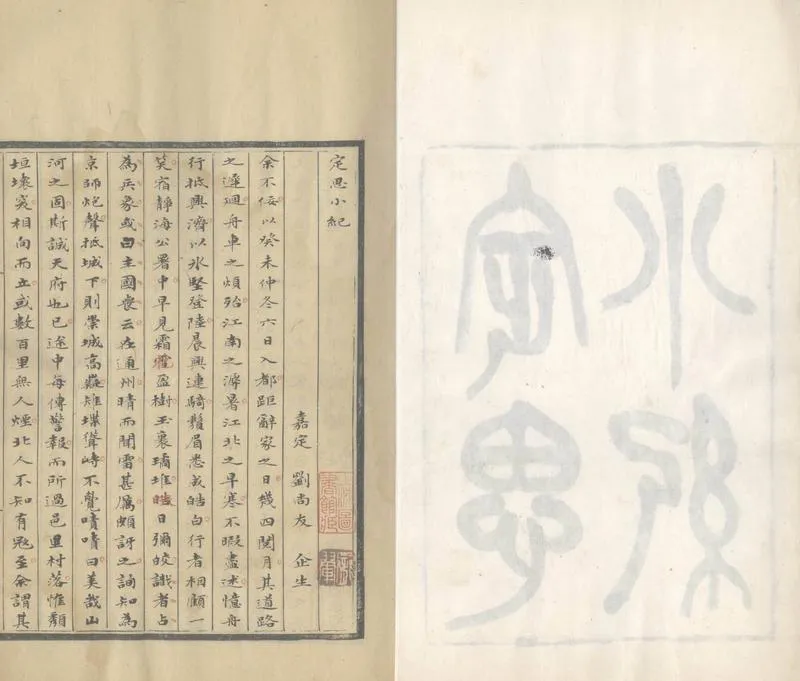 定思
小紀
定思小紀
嘉定 劉尚友 企生
余不佞以癸未仲冬六日入都距辭家之日幾四閱月其道路
之遲迴舟車之煩殆江南之溽暑江北之早寒不暇盡述憶舟
行抵興濟以氷堅登陸晨興連騎鬚眉悉成皓白行者相顧一
笑宿靜海公署中早見霜盈樹玉裹璚堆皓日彌皎識者占
為兵象或曰主國喪云在通州晴而聞雷甚厲頗訝之詢知為
京師炮聲抵城下則崇城高巍雉堞聳峙不覺嘖嘖曰美哉山
河之固斯誠天府也已途中每傳警報而所過邑里村落惟頹
垣壞相向而立或數百里無人煙北人不知有冦至余謂其